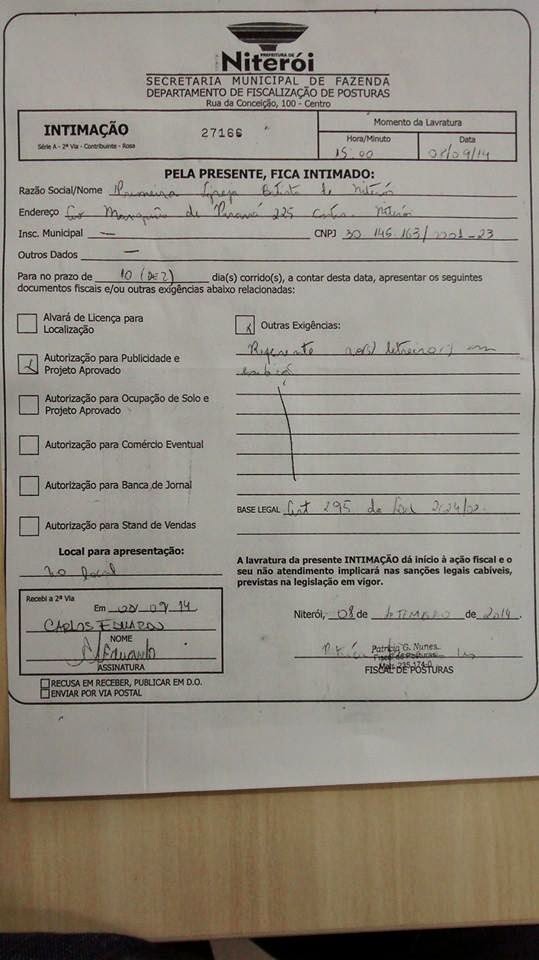 PREFEITURA DE
Niterói
SECRETARIA MUNICIPAL DE FAZENDA
DEPARTAMENTO DE FISCALIZAÇÃO DE POSTURAS
Rua da Conceição, 100 - Centro
INTIMAÇÃO
Série A - 2ª Via - Contribuinte - Rosa
27166
Momento da Lavratura
Hora/Minuto
Data
15:00
08/09/14
PELA PRESENTE, FICA INTIMADO:
Razão Social/Nome Primeira Igreja Batista de Niterói
Endereço Av Marquês de Paraná 225 Centro Niterói
Insc. Municipal —
CNPJ 30.145.163/0001-23
Outros Dados —
Para no prazo de 10 (DEZ) dia(s) corrido(s), a contar desta data, apresentar os seguintes
documentos fiscais e/ou outras exigências abaixo relacionadas:
Alvará de Licença para
Localização
x Autorização para Publicidade e
Projeto Aprovado
Autorização para Ocupação de Solo e
Projeto Aprovado
Autorização para Comércio Eventual
Autorização para Banca de Jornal
Autorização para Stand de Vendas
x Outras Exigências:
Referente ao(s) letreiro(s) em
BASE LEGAL Art 295 da Lei 2624/02
Local para apresentação:
no local
A lavratura da presente INTIMAÇÃO dá início à ação fiscal e o
seu não atendimento implicará nas sanções legais cabíveis,
previstas na legislação em vigor.
Recebi a 2ª Via
Em 08/09/14
CARLOS EDUARDO
NOME
Eduardo
ASSINATURA
Niterói, 08 de SETEMBRO de 2014
Patrícia G. Nunes
Fiscal de Posturas
Mat. 235.174-0
FISCAL DE POSTURAS
RECUSA EM RECEBER, PUBLICAR EM D.O.
ENVIAR POR VIA POSTAL